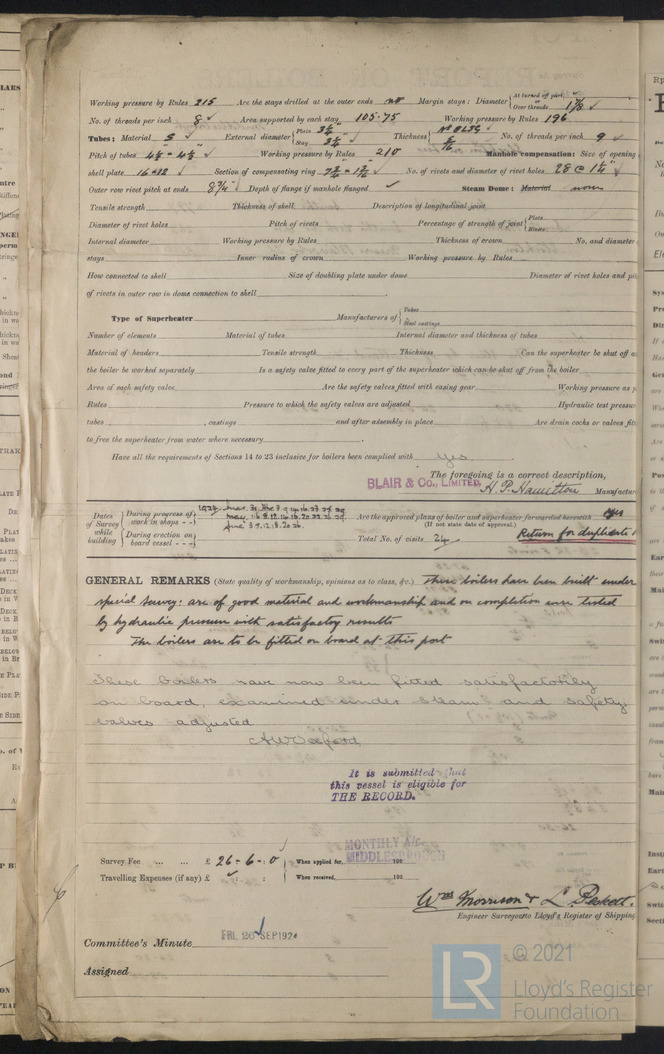 Working pressure by Rules 215 Are the stays drilled at the outer ends no Margin stays: Diameter { At turned off part, Over threads 1 7/8
No. of threads per inch 8 Area supported by each stay 105.75 Working pressure by Rules 196
Tubes: Material S External diameter { Plain 3 1/2" Stay 3 1/2" Thickness { No. of threads per inch 9
Pitch of tubes 4 1/2 × 4 1/2 Working pressure by Rules 210 Manhole compensation: Size of opening
shell plate 16 × 12 Section of compensating ring No. of rivets and diameter of rivet holes 28 @ 1 1/4
Outer row rivet pitch at ends 8 3/4 Depth of flange if manhole flanged Steam Dome: Material none
Tensile strength Thickness of shell Description of longitudinal joint
Diameter of rivet holes Pitch of rivets Percentage of strength of joint { Plate Rivets
Internal diameter Working pressure by Rules Thickness of crown No. and diameter
stays Inner radius of crown Working pressure by Rules
How connected to shell Size of doubling plate under dome Diameter of rivet holes and
of rivets in outer row in dome connection to shell
Type of Superheater Manufacturers of { Tubes Steel castings
Number of elements Material of tubes Internal diameter and thickness of tubes
Material of headers Tensile strength Thickness Can the superheater be shut off
the boiler be worked separately Is a safety valve fitted to every part of the superheater which can be shut off from the boiler
Area of each safety valve Are the safety valves fitted with easing gear Working pressure as
Rules Pressure to which the safety valves are adjusted Hydraulic test
tubes , castings and after assembly in place Are drain cocks or valves
to free the superheater from water where necessary
Have all the requirements of Sections 14 to 23 inclusive for boilers been complied with yes
The foregoing is a correct description,
BLAIR & Co., LIMITED, H. P. Hamelton
Dates of Survey while building { During progress of work in shops - - 1924
Are the approved plans of boiler and superheater forwarded herewith yes
(If not state date of approval.)
During erection on board vessel - - - Total No. of visits 24 Return for duplicate
GENERAL REMARKS (State quality of workmanship, opinions as to class, &c.) These boilers have been built under
special survey: are of good material and workmanship and on completion were tested
by hydraulic pressure with satisfactory results
The boilers are to be fitted on board at this port
These boilers have now been fitted satisfactorily
on board, examined under steam and safety
valves adjusted
It is submitted that
this vessel is eligible for
THE RECORD.
Survey Fee ... ... £ 26 - 6 - 0 When applied for, MONTHLY A/C MIDDLESBROUGH 192
Travelling Expenses (if any) £ : : When received, 192
Wm Morrison & L. Peskett.
Engineer Surveyor to Lloyd's Register of Shipping
Committee's Minute FRI. 26 SEP 1924
Assigned
© 2021
LR Lloyd's Register
Foundation